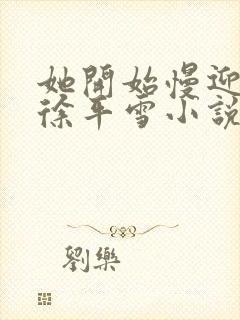 她開始慢迎
徐平雪小說
劉樂